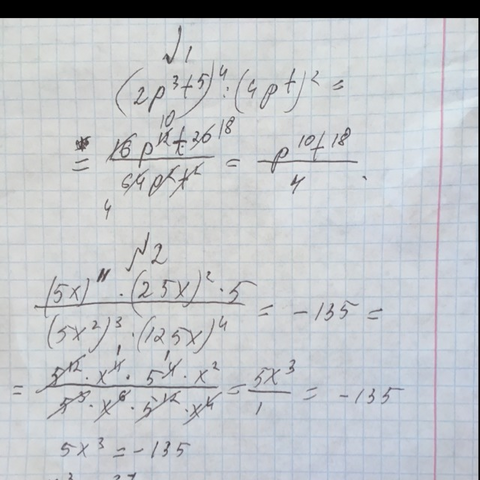 №1
(2p³t⁵)⁴ : (4pt)² =
= 16p¹²t²⁰ / 64p²t² = p¹⁰t¹⁸ / 4 .
№2
(5x)¹¹ · (25x)² · 5 / (5x²)³ · (125x)⁴ = -135 =
= 5¹² · x¹¹ · 5⁴ · x² / 5³ · x⁶ · 5¹² · x⁴ = 5x³ / 1 = -135
5x³ = -135